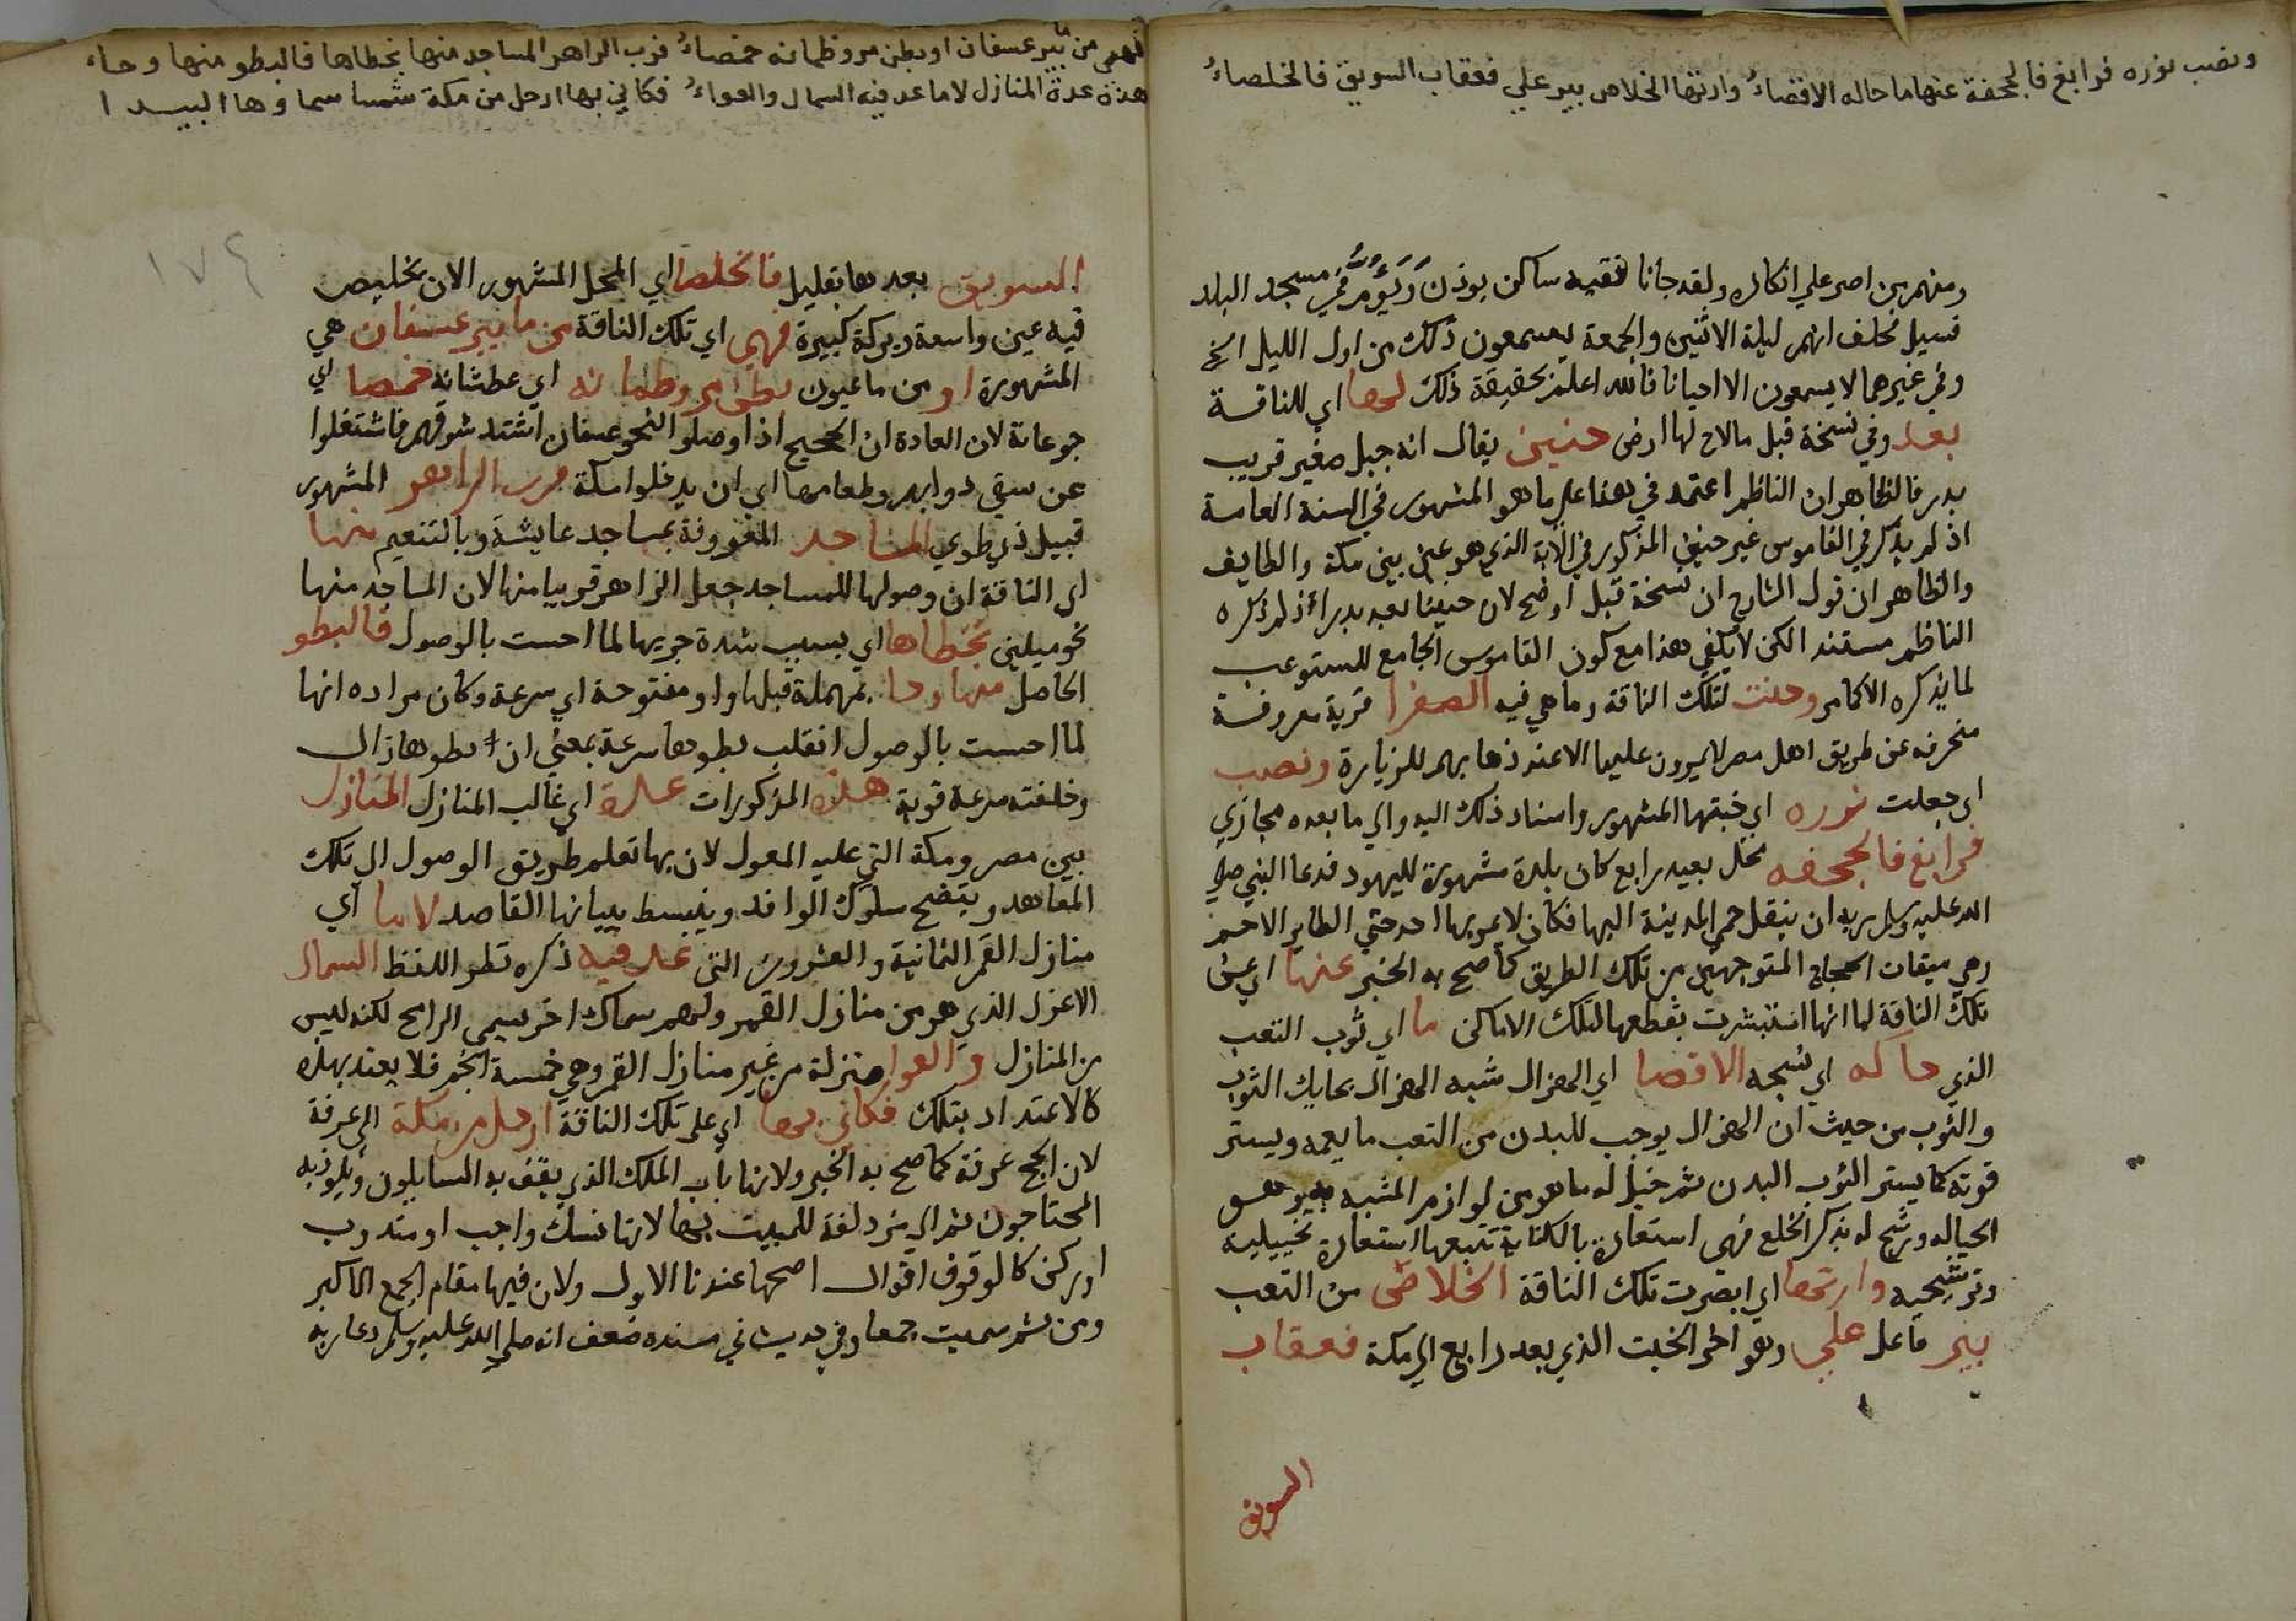 ونضب بزوره فرابغ فالجحفة عنها ما حاكه الاقضاءُ وارتها الخلاص بير علي فعقاب السويق فالخلصاءُ
ومنهم من اصر علي انكاره ولقد جانا فقيه ساكن بوذن ويؤم في مسجد البلد
فسيل فحلف انهم ليلة الاثنين والجمعة يسمعون ذلك من اول الليل الخ
وفي غيرهما لا يسمعون الا احيانا فالله اعلم بحقيقة ذلك لها اي للناقة
بعد وفي نسخة قبل مالاح لها ارض حنين يقال انه جبل صغير قريب
بدر فالظاهر ان الناظم اعتمد في هذا علي ما هو المشهور في السنة العامة
اذ لم يذكر في القاموس غير حنين المذكور في الاية الذي هو عين بين مكة والطايف
والظاهر ان قول الشارح ان نسخة قبل اوضح لان حنينا بعد بدر اذ لم يذكره
الناظم مستند الكن لا يكفي هذا مع كون القاموس الجامع المستوعب
لما يذكره الاكام وحنت لتلك الناقة وما هي فيه الصفرا قرية معروفة
منحرفه عن طريق اهل مصر لا يمرون عليها الا عند ذهابهم للزيارة ونضب
اي جعلت بزوره اي خبتها المشهور واسناد ذلك اليه والي ما بعده مجازي
فرابغ فالجحفه محل بعيد رابغ كان بلدة مشهورة لليهود فدعا النبي صلي
الله عليه وسلم ربه ان ينقل حمي المدينة اليها فكان لا يمر بها احد حتي الطاير الا حم
وهي ميقات الحجاج المتوجهين من تلك الطريق كما صح به الخبر عنها اي عن
تلك الناقة لما انها استبشرت بقطعها لتلك الاماكن ما اي ثوب التعب
الذي حاكه اي نسجه الاقضا اي الهزال شبه الهزال بحايك الثوب
والثوب من حيث ان الهزال يوجب للبدن من التعب ما يعمه ويستر
قوته كما يستر الثوب البدن ثم خيل له ما هو من لوازم المشبه به وهو
الحياكه ورشح له بذكر الخلع فهي استعارة بالكناية تتبعها استعارة تخييلية
وترشيحيه وارتها اي ابصرت تلك الناقة الخلاص من التعب
بير فاعل علي وهو اخر الخبت الذي بعد رابع الي مكة فعقاب
السويق
فهي من بير عسفان او بطن مر وظمانه خمصاءُ قرب الزاهر المساجد منها بخطاها فالبطو منها وحاء
هذه عدة المنازل لا ما عد فيه السماك والعواءُ فكاني بها ارحل من مكة شمسا سماوها البيدا
١٧٤
السويق بعدها بقليل فالخلصا اي المحل المشهور الان بخليص
فيه عين واسعة وبركة كبيرة فهي اي تلك الناقة من ما بير عسفان هي
المشهورة او من ما عيون بطن مر وظمانه اي عطشانه خمصا اي
جوعانة لان العادة ان الحجيج اذا وصلوا النحو عسفان اشتد شوقهم فاشتغلوا
عن سقي دوابهم وطعامها الي ان يدخلوا مكة قرب الزاهر المشهور
قبيل ذي طوي المساجد المعروفة بمساجد عايشة وبالتنعيم منها
اي الناقة ان وصولها للمساجد جعل الزاهر قريبا منها لان المساجد منها
نحو ميلين بخطاها اي بسبب شدة جريها لما احست بالوصول فالبطو
الحاصل منها وحا بمهملة قبلها واو مفتوحة اي سرعة وكان مراده انها
لما احست بالوصول انقلب بطوها سرعة بمعني ان بطوها زال
وخلفته سرعة قوية هذه المذكورات عدة اي غالب المنازل المنازل
بين مصر ومكة التي عليه المعول لان بها تعلم طريق الوصول الي تلك
المعاهد ويتضح سلوك الوافد وينبسط ببيانها القاصد لا ما اي
منازل القمر الثمانية والعشرون التي عد فيه ذكره نظرا للفظ السماك
الاعزل الذي هو من منازل القمر ولهم سماك اخر يسمي الرامح لكنه ليس
من المنازل والعوا منزلة من غير منازل القمر وهي خمسة انجم فلا يعتد بهذه
كالاعتداد بتلك فكاني بها اي علي تلك الناقة ارحل من مكة الي عرفة
لان الحج عرفة كما صح به الخبر ولانها باب الملك الذي يقف به السايلون ويلوذ به
المحتاجون ثم الي مزدلفة للمبيت بها لانها نسك واجب او مندوب
او ركن كالوقوف اقوال اصحها عندنا الاول ولان فيها مقام الجمع الاكبر
ومن ثم سميت جمعا وفي حديث في سنده ضعف انه صلي الله عليه وسلم دعا ربه